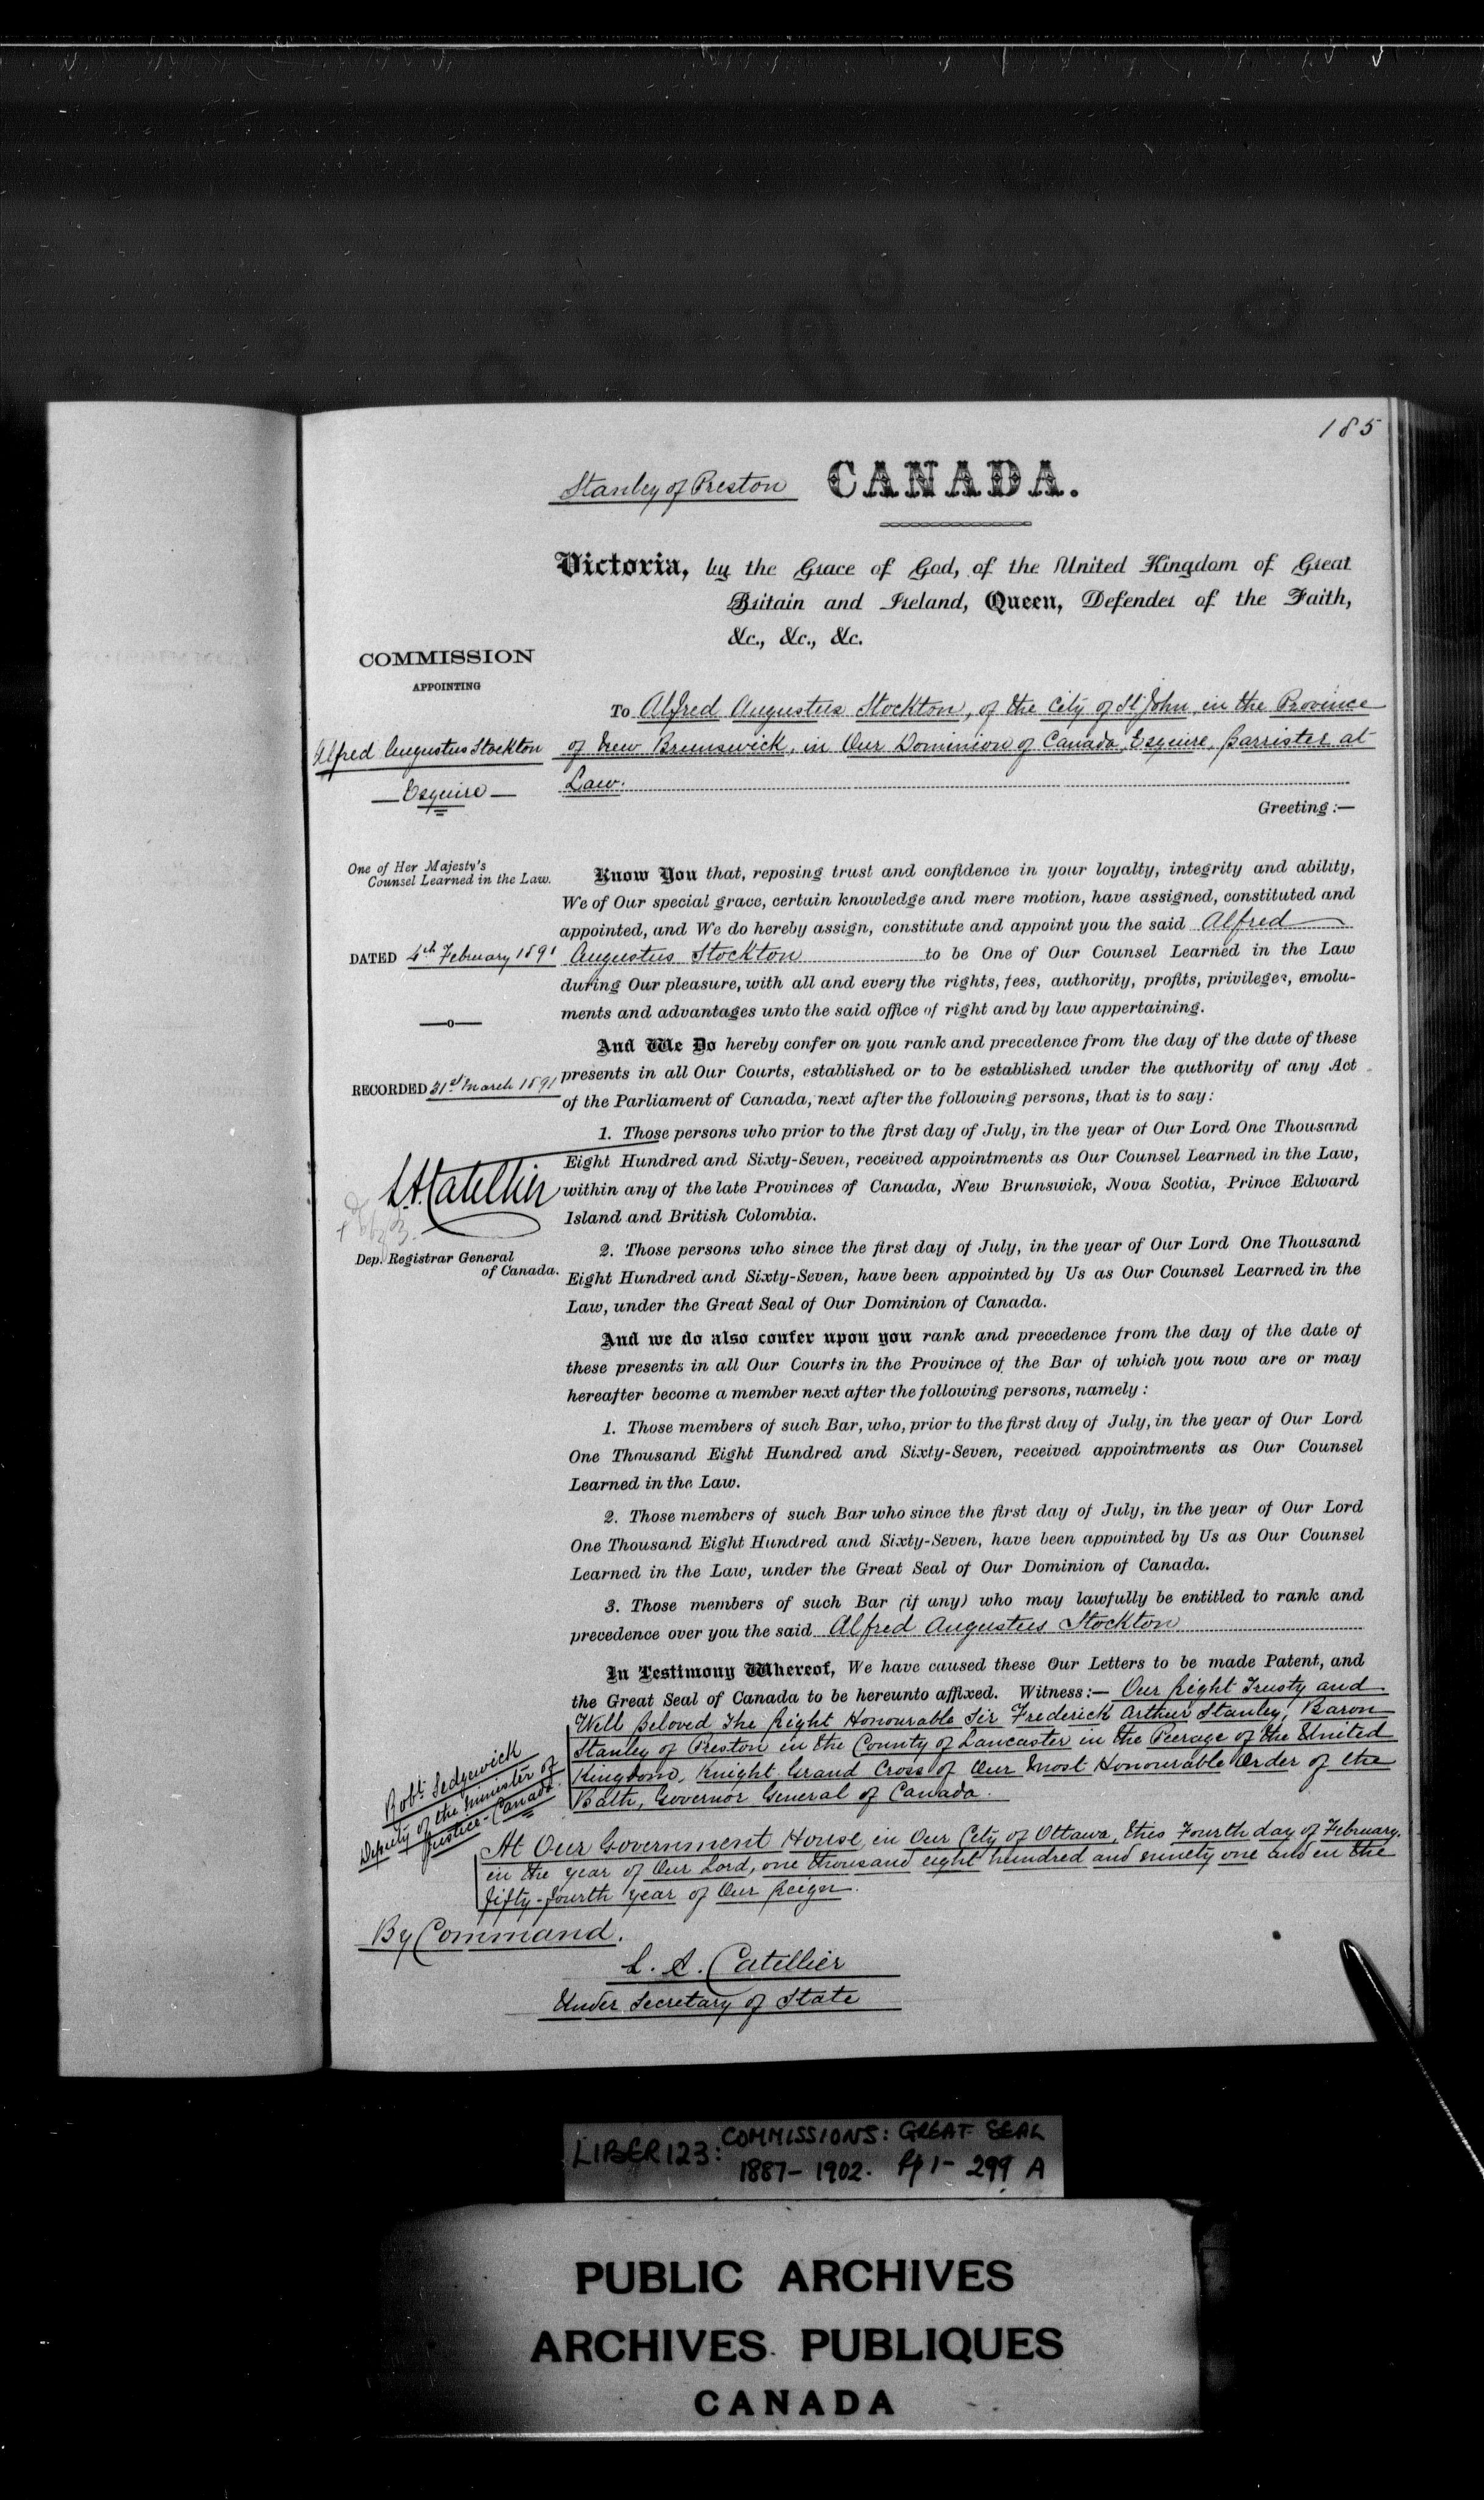 185
Stanley of Preston CANADA.
Victoria, by the Grace of God, of the United Kingdom of Great
Britain and Ireland, Queen, Defender of the Faith,
&c., &c., &c.
COMMISSION
APPOINTING
Alfred Augustus Stockton
Esquire
One of Her Majesty's
Counsel Learned in the Law.
DATED 4th February 1891
—o—
RECORDED 31st March 1891
L.A. Catellier
Dep. Registrar General
of Canada.
To Alfred Augustus Stockton, of the City of St John, in the Province
of New Brunswick, in Our Dominion of Canada, Esquire, Barrister at
Law.
Greeting :—
Know You that, reposing trust and confidence in your loyalty, integrity and ability,
We of Our special grace, certain knowledge and mere motion, have assigned, constituted and
appointed, and We do hereby assign, constitute and appoint you the said Alfred
Augustus Stockton to be One of Our Counsel Learned in the Law
during Our pleasure, with all and every the rights, fees, authority, profits, privileges, emolu-
ments and advantages unto the said office of right and by law appertaining.
And We Do hereby confer on you rank and precedence from the day of the date of these
presents in all Our Courts, established or to be established under the authority of any Act
of the Parliament of Canada, next after the following persons, that is to say:
1. Those persons who prior to the first day of July, in the year of Our Lord One Thousand
Eight Hundred and Sixty-Seven, received appointments as Our Counsel Learned in the Law,
within any of the late Provinces of Canada, New Brunswick, Nova Scotia, Prince Edward
Island and British Colombia.
2. Those persons who since the first day of July, in the year of Our Lord One Thousand
Eight Hundred and Sixty-Seven, have been appointed by Us as Our Counsel Learned in the
Law, under the Great Seal of Our Dominion of Canada.
And we do also confer upon you rank and precedence from the day of the date of
these presents in all Our Courts in the Province of the Bar of which you now are or may
hereafter become a member next after the following persons, namely :
1. Those members of such Bar, who, prior to the first day of July, in the year of Our Lord
One Thousand Eight Hundred and Sixty-Seven, received appointments as Our Counsel
Learned in the Law.
2. Those members of such Bar who since the first day of July, in the year of Our Lord
One Thousand Eight Hundred and Sixty-Seven, have been appointed by Us as Our Counsel
Learned in the Law, under the Great Seal of Our Dominion of Canada.
3. Those members of such Bar (if any) who may lawfully be entitled to rank and
precedence over you the said Alfred Augustus Stockton
In Testimony Whereof, We have caused these Our Letters to be made Patent, and
the Great Seal of Canada to be hereunto affixed. Witness:— Our Right Trusty and
Well Beloved The Right Honourable Sir Frederick Arthur Stanley, Baron
Stanley of Preston in the County of Lancaster in the Peerage of the United
Kingdom, Knight Grand Cross of Our Most Honourable Order of the
Bath, Governor General of Canada.
Robt. Sedgewick
Deputy of the Minister of
Justice - Canada
At Our Government House, in Our City of Ottawa, this Fourth day of February.
in the year of Our Lord, one thousand eight hundred and ninety one and in the
fifty-fourth year of Our Reign.
By Command.
L. A. Catellier
Under Secretary of State
LIBER 123: COMMISSIONS: GREAT SEAL
1887- 1902. Pp 1- 299 A
PUBLIC ARCHIVES
ARCHIVES PUBLIQUES
CANADA